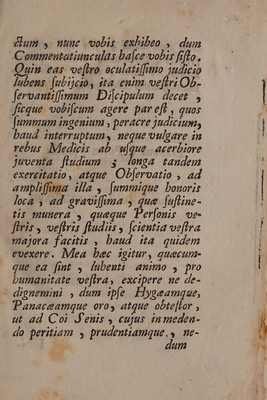 ctum , nunc vobis exhibeo , dum
Commentatiunculas hasce vobis sisto.
Quin eas vestro oculatissimo judicio
lubens subijcio, ita enim vestri Ob-
servantissimum Discipulum decet ,
sicque vobiscum agere par est , quos
summum ingenium, peracre judicium,
haud interruptum, neque vulgare in
rebus Medicis ab usque acerbiore
juventa studium ; longa tandem
exercitatio, atque Observatio , ad
amplissima illa , summique honoris
loca , ad gravissima , quæ sustine-
tis munera , quæque Personis ve-
stris , vestris studiis , scientia vestra
majora facitis , haud ita quidem
evexere. Mea hæc igitur, quæcum-
que ea sint , lubenti animo , pro
humanitate vestra, excipere ne de-
dignemini , dum ipse Hygæamque,
Panacæamque oro, atque obtestor ,
ut ad Coi Senis , cujus in meden-
do peritiam , prudentiamque , ne-
dum